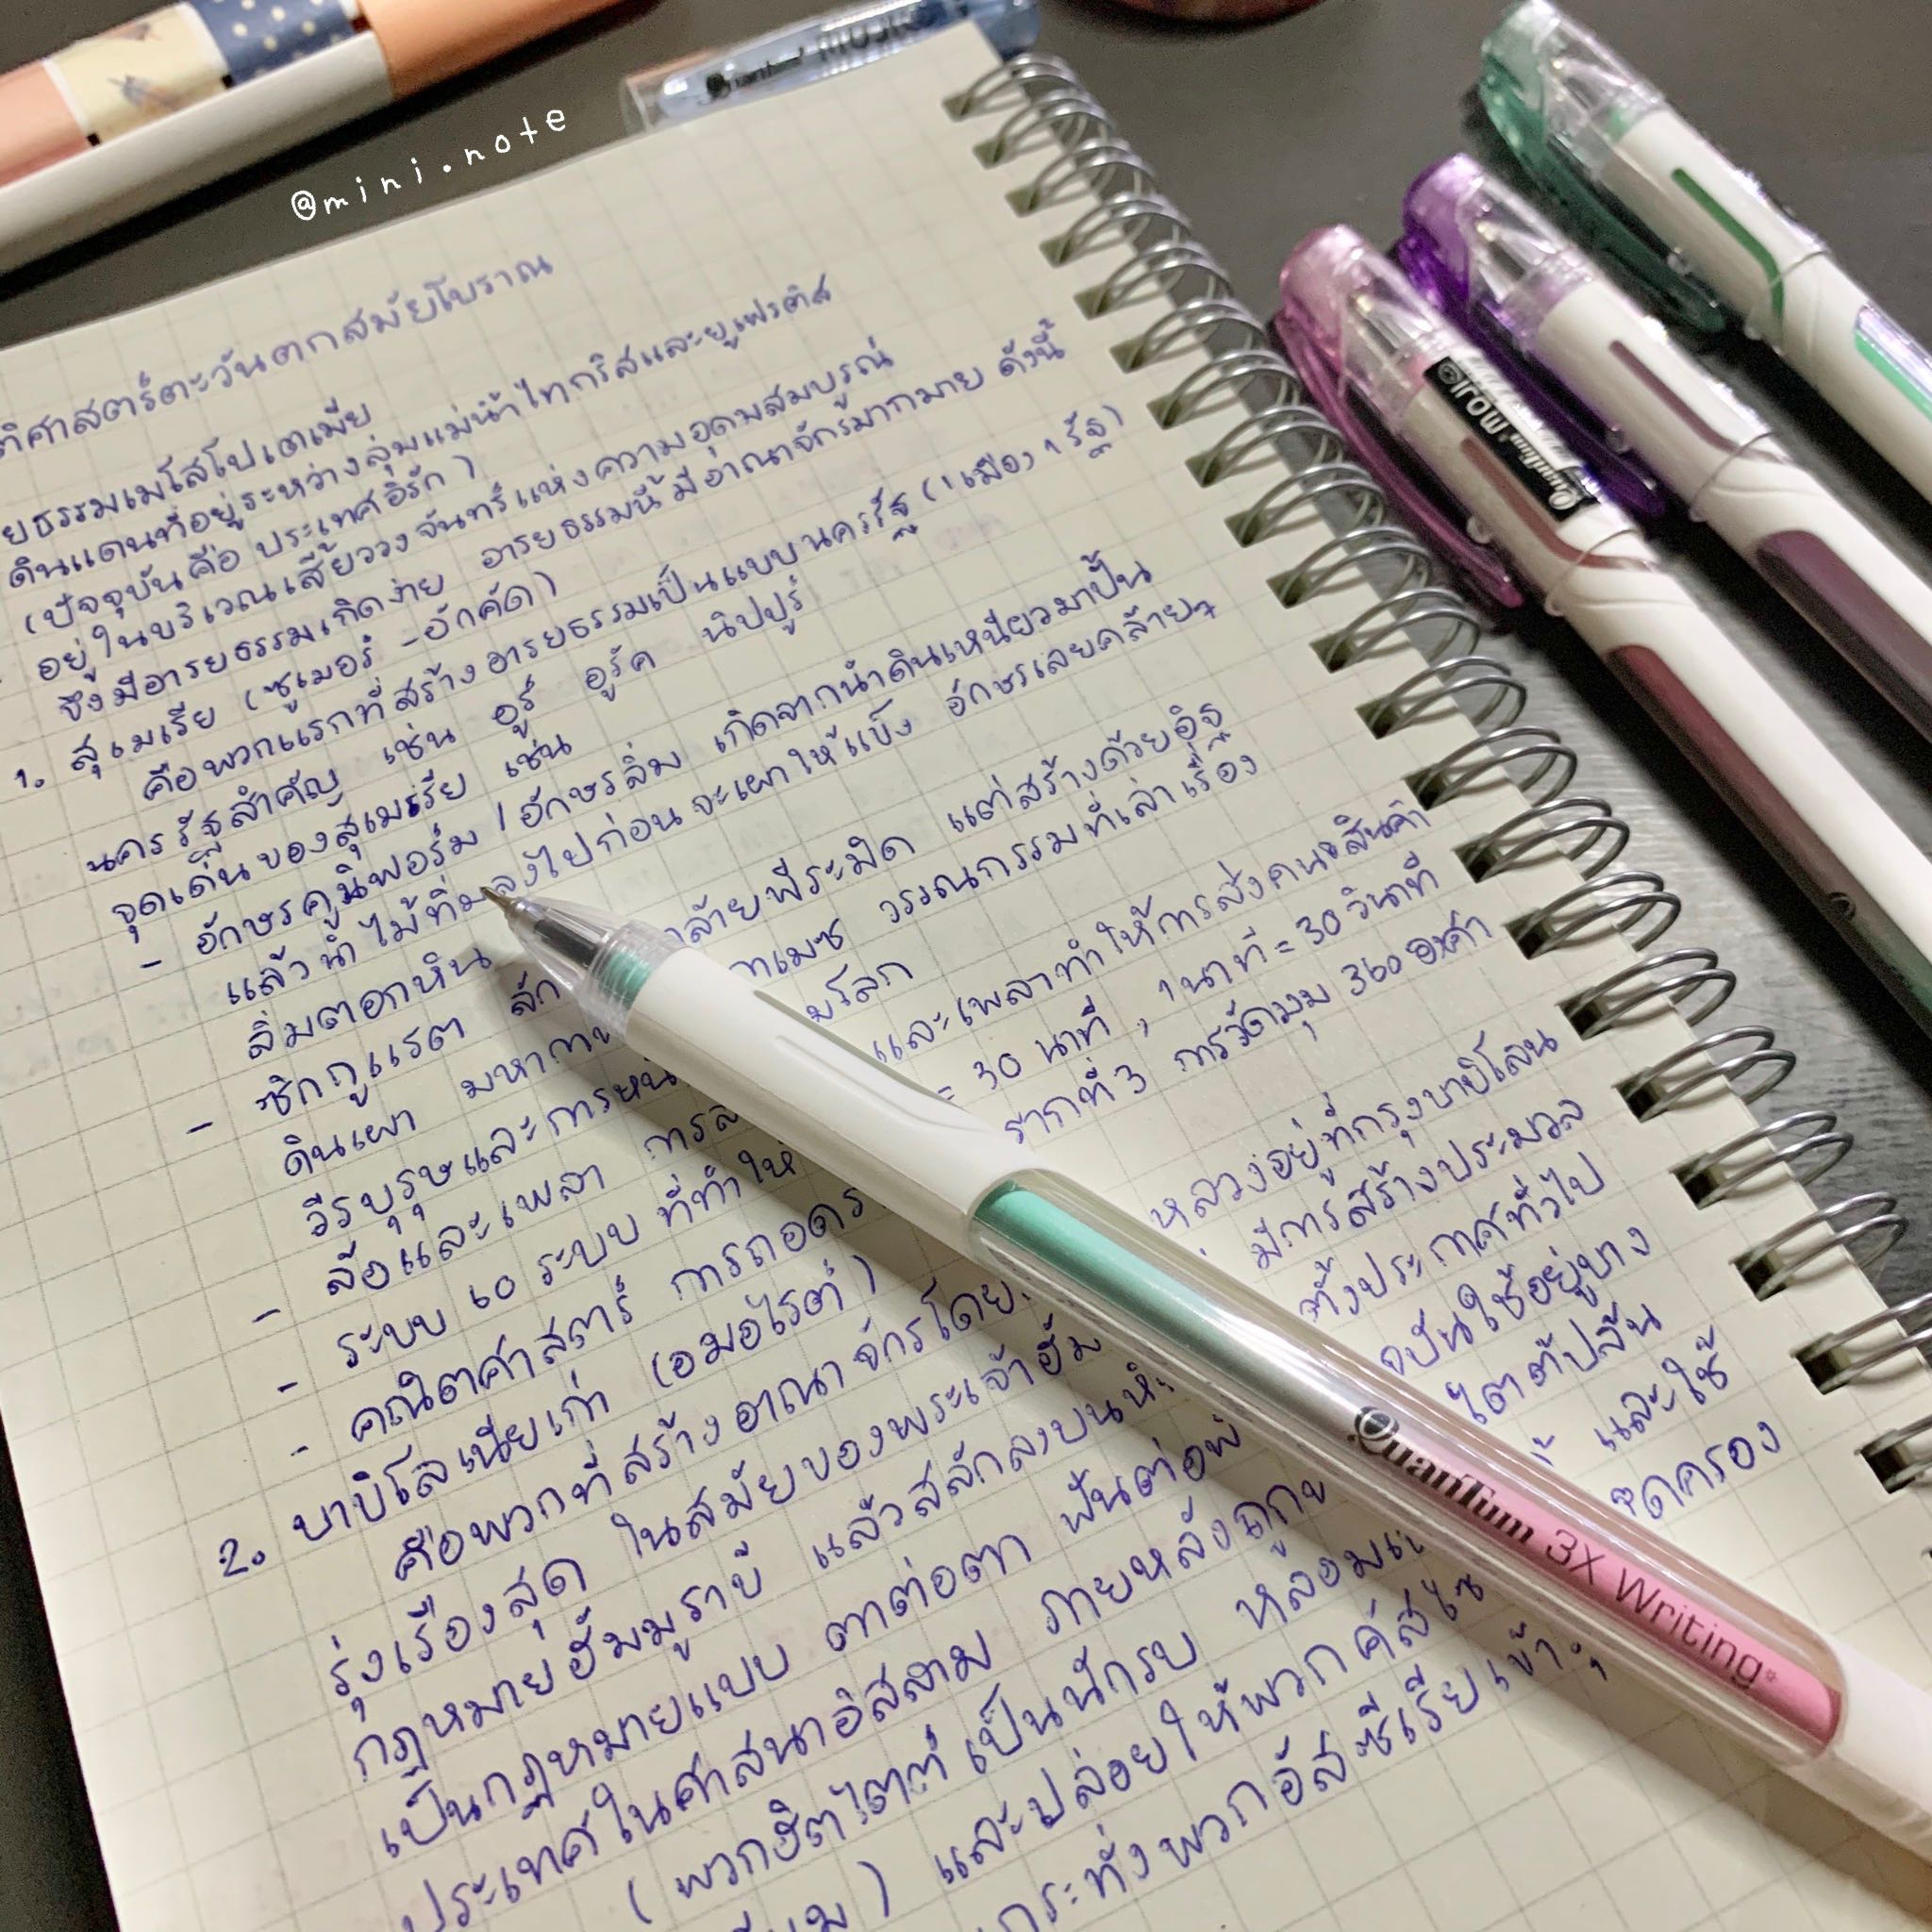 @mini.note
ติศาสตร์ตะวันตกสมัยโบราณ
ยธรรมเมโสโปเตเมีย
ดินแดนที่อยู่ระหว่างลุ่มแม่น้ำไทกริสและยูเฟรติส
(ปัจจุบันคือ ประเทศอิรัก)
อยู่ในบริเวณเสี้ยววงจันทร์แห่งความอุดมสมบูรณ์
ซึ่งมีอารยธรรมเกิดง่าย อารยธรรมนี้มีอาณาจักรมากมาย ดังนี้
1. สุเมเรีย (ซูเมอร์-อักคัด)
คือพวกแรกที่สร้างอารยธรรมเป็นแบบนครรัฐ (1 เมือง 1 รัฐ)
นครรัฐสำคัญ เช่น อูร์ อูรุค นิปปูร์
จุดเด่นของสุเมเรีย เช่น
- อักษรคูนิฟอร์ม / อักษรลิ่ม เกิดจากนำดินเหนียวมาปั้น
แล้วนำไม้ทิ่มลงไปก่อนจะเผาให้แข็ง อักษรเลยคล้ายๆ
ลิ่มตอกหิน
- ซิกกูแรต ลัก ล้ายพีระมิด แต่สร้างด้วยอิฐ
ดินเผา มหากาพ กาเมซ วรรณกรรมที่เล่าเรื่อง
วีรบุรุษและการ มโลก
- ล้อและเพลา การล และเพลาทำให้การส่งคน สินค้า
- ระบบ 60 ระบบ ที่ทำให้ = 30 นาที , 1 นาที = 30 วินาที
- คณิตศาสตร์ การถอดร รากที่ 3 การวัดมุม 360 องศา
2. บาบิโลเนียเก่า (อมอไรต์)
คือพวกที่สร้างอาณาจักรโดย หลวงอยู่ที่กรุงบาบิโลน
รุ่งเรืองสุด ในสมัยของพระเจ้าฮัม มีการสร้างประมวล
กฎหมายฮัมมูราบี แล้วสลักลงบนหิ ทั้งประกาศทั่วไป
เป็นกฎหมายแบบ ตาต่อตา ฟันต่อฟั จุบันใช้อยู่บาง
ประเทศในศาสนาอิสลาม ภายหลังถูก ไตต์ปล้น
(พวกฮิตไตต์ เป็นนักรบ หลอม และใช้
) และปล่อยให้พวกคัสไซ ยึดครอง
กระทั่งพวกอัสซีเรียเข้า
Quantum 3X Writing
Quantum MOJIE
Quantum